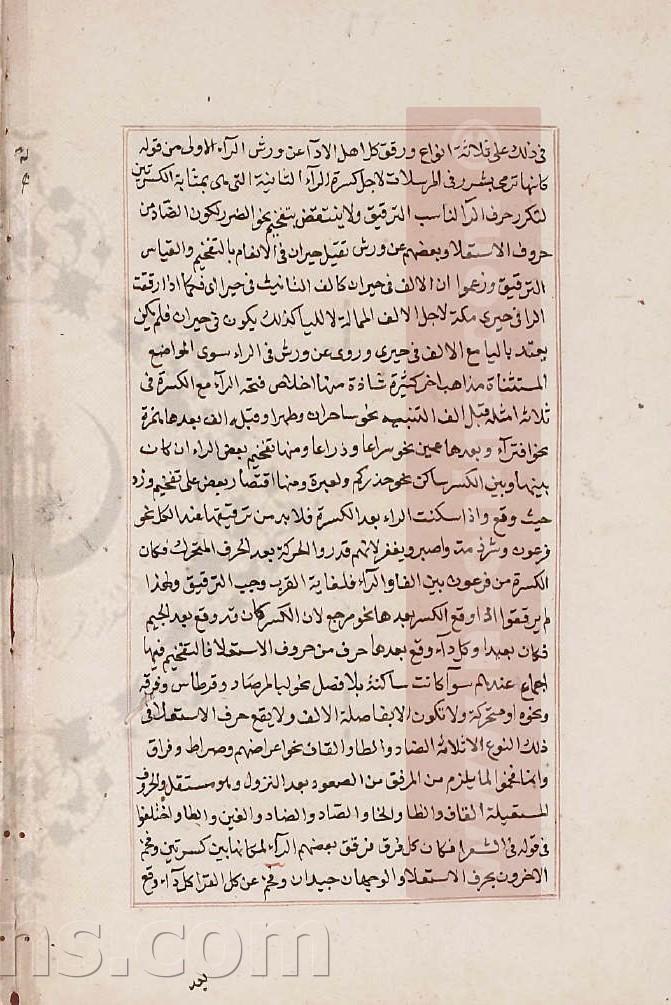 في ذلك على ثلاثة انواع ورقق كل اهل الادآ عن ورش الرآء الاولى من قوله
كانها ترمى بشرر فى المرسلات لاجل كسرة الرآء الثانية التى هى بمثابة الكسرتين
لتكرر حرف الرآ لناسب الترقيق ولا ينتقض بتفخيم نحو الضرر لكون الضاد من
حروف الاستعلا وبعضهم عن ورش تقبل حيران فى الانعام بالتفخيم والقياس
الترقيق وزعموا ان الالف فى حيران كالف التانيث فى حيرى اى فكما اذا رققت
الرا فى حيرى مكة لاجل الالف الممالة لا للياء كذلك يكون فى حيران فلم يكن
يعتد باليا مع الالف فى حيرى وروى عن ورش فى الراء سوى المواضع
المستثناة مذاهب اخر كثيرة شاذة منها اخلاص فتحة الرآء مع الكسرة فى
ثلاثة امثلة قبل الف التثنية نحو ساحران وطهرا وقبل الف بعدها همزة
نحو افترآء وبعدها عين نحو سراعا وذراعا ومنها تفخيم بعض الراء ان كان
بينها وبين الكسر ساكن نحو حذركم ولعبرة ومنها اقتصار بعض على تفخيم وزر
حيث وقع واذا سكنت الراء بعد الكسرة فلا بد من ترقيقها عند الكل نحو
فرعون وشرذمة واصبر ويغفر لانهم قدروا الحركة بعد الحرف المتحرك فكان
الكسرة من فرعون بين الفا والرآء فلغاية القرب وجب الترقيق ولهذا
لم يرققوا اذا وقع الكسر بعدها نحو مرجع لان الكسر كان قد وقع بعد الجيم
فكان بعيدا وكل رآء وقع بعدها حرف من حروف الاستعلا فالتفخيم فيها
اجماع عندهم سوآ كانت ساكنة بلا فصل نحو لبالمرصاد وقرطاس وفرقة
ونحوه او متحركة ولا تكون الا بفاصلة الالف ولا يقع حرف الاستعلا فى
ذلك النوع الا ثلاثة الضاد والطا والقاف نحو اعراضهم وصراط وفراق
وانما فخموا لما يلزم من المرقق من الصعود بعد النزول وهو مستقل والحروف
المستعلية القاف والظا والخا والصاد والضاد والغين والطا واختلفوا
فى قوله فى الشعرا فكان كل فرق فرقق بعضهم الرآء لمكانها بين كسرتين وفخم
الاخرون بحرف الاستعلا والوجهان جيدان وفخم عن كل القرا كل رآء وقع
بعد